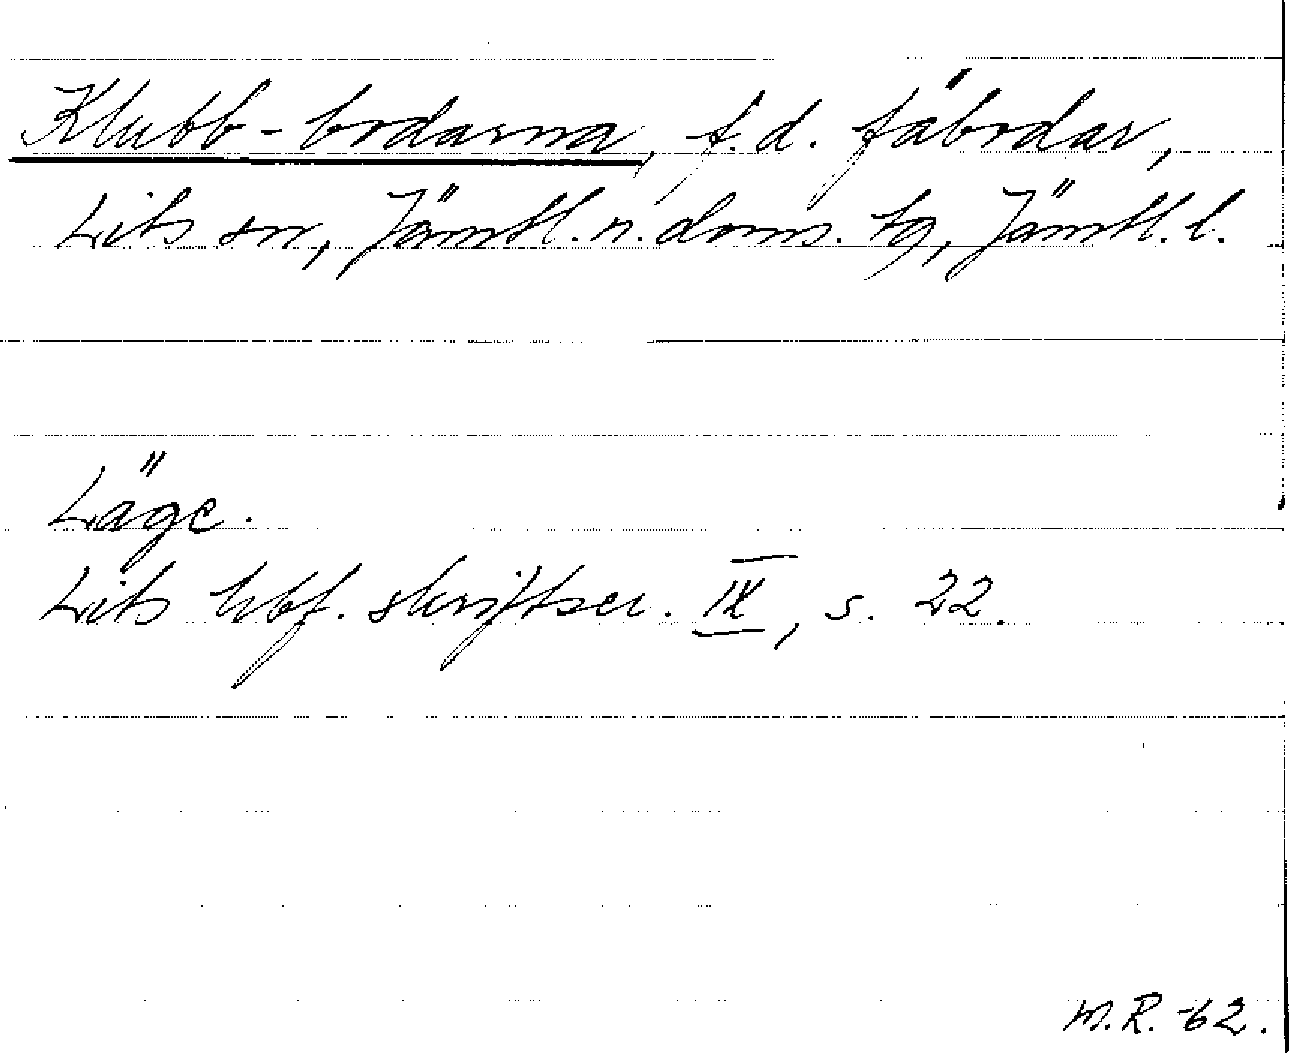 Klubb-bodarna, f.d. fäbodar,
Lits sn, Jämtl. n. doms. tg, Jämtl. l.
Läge.
Lits hbf. skriftser. IX, s. 22.
M.R. -62.